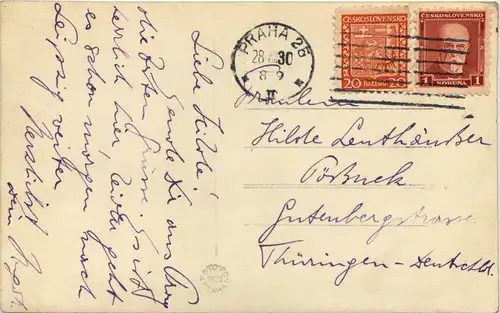 Liebe Hilde!
sende Dir aus Prag
die besten Grüsse. Es ist
herrlich hier, leider geht
es schon morgen nach
Leipzig weiter.
Herzlichst
dein
PRAHA 25
28 30
8
II
ČESKOSLOVENSKO
20 HALÉŘŮ 20
ČESKOSLOVENSKO
1 KORUNA 1
Fräulein
Hilde Lenthäußer
Pößneck
Gutenbergstrasse
Thüringen - Deutschld.